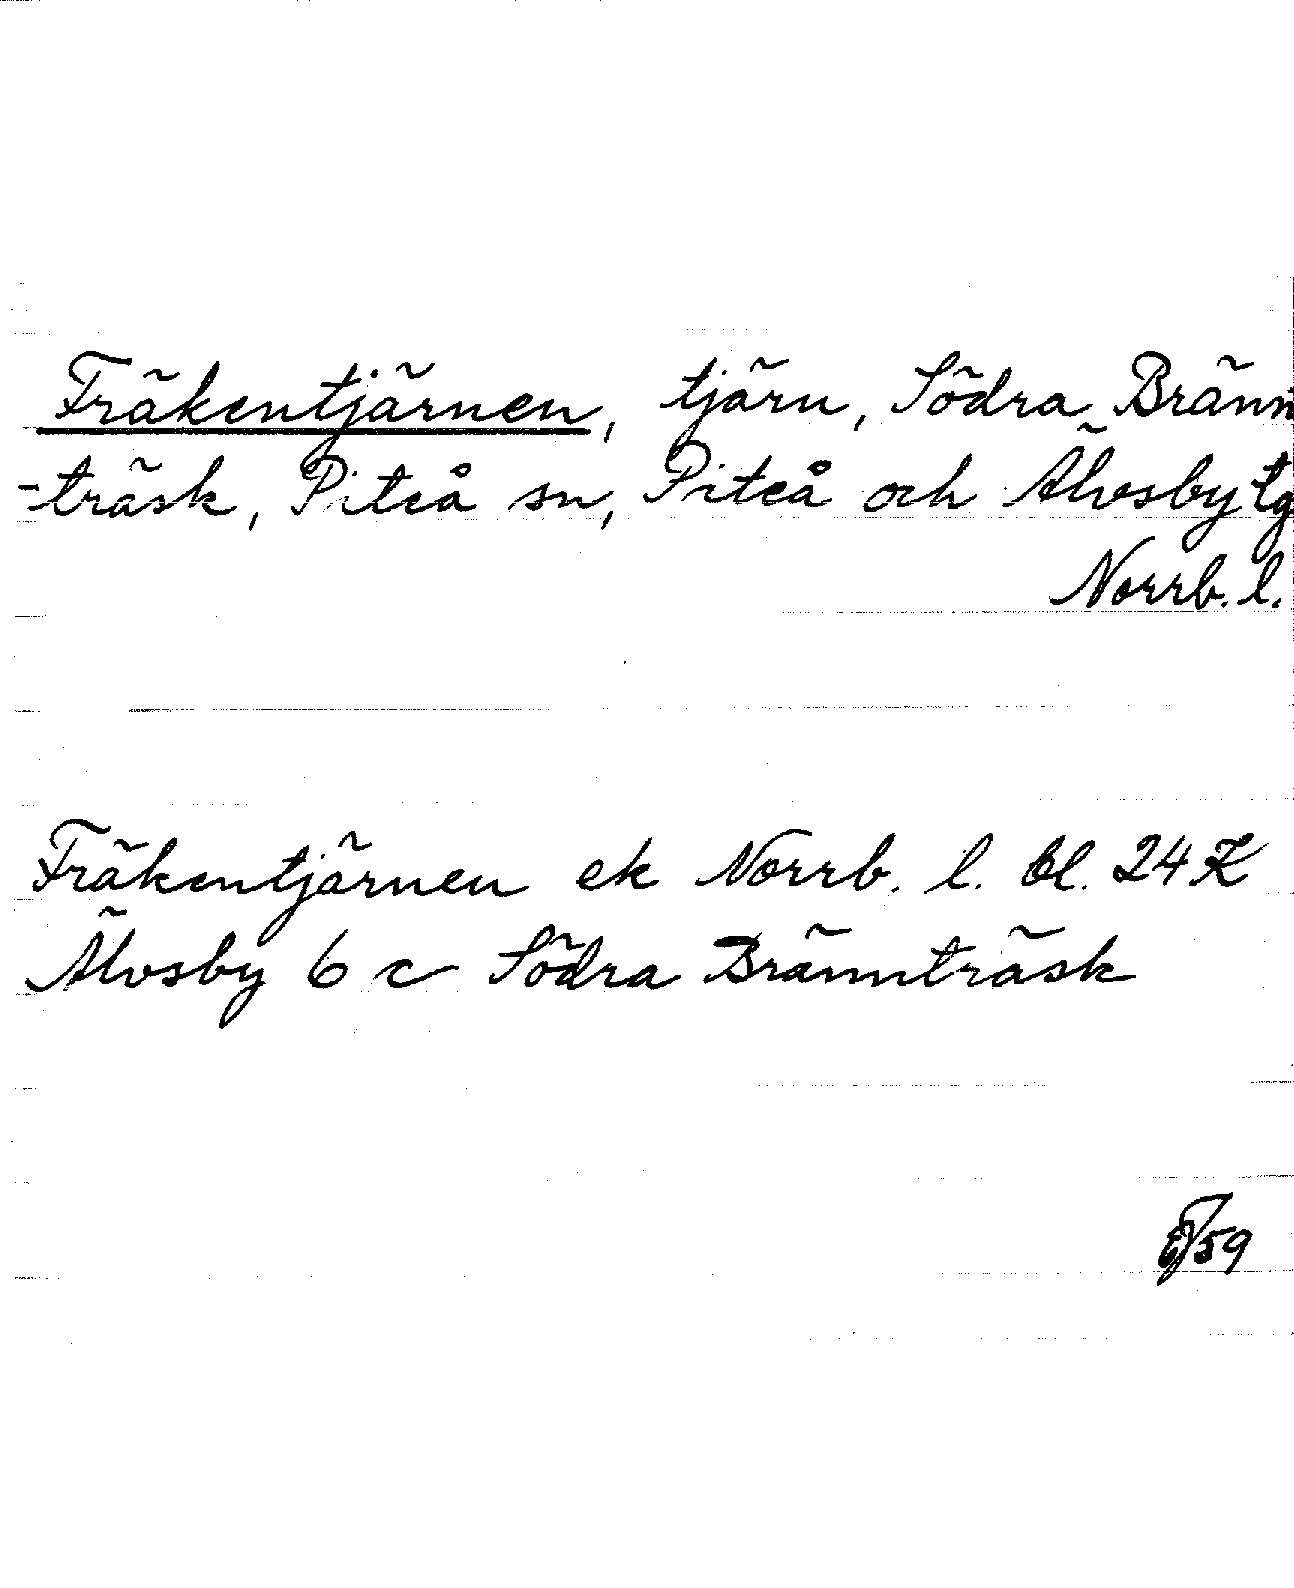 Fräkentjärnen, tjärn, Södra Bränn
-träsk, Piteå sn, Piteå och Älvsby tg
Norrb. l.
Fräkentjärnen ek Norrb. l. bl. 24 K
Älvsby 6 c Södra Brännträsk
/59